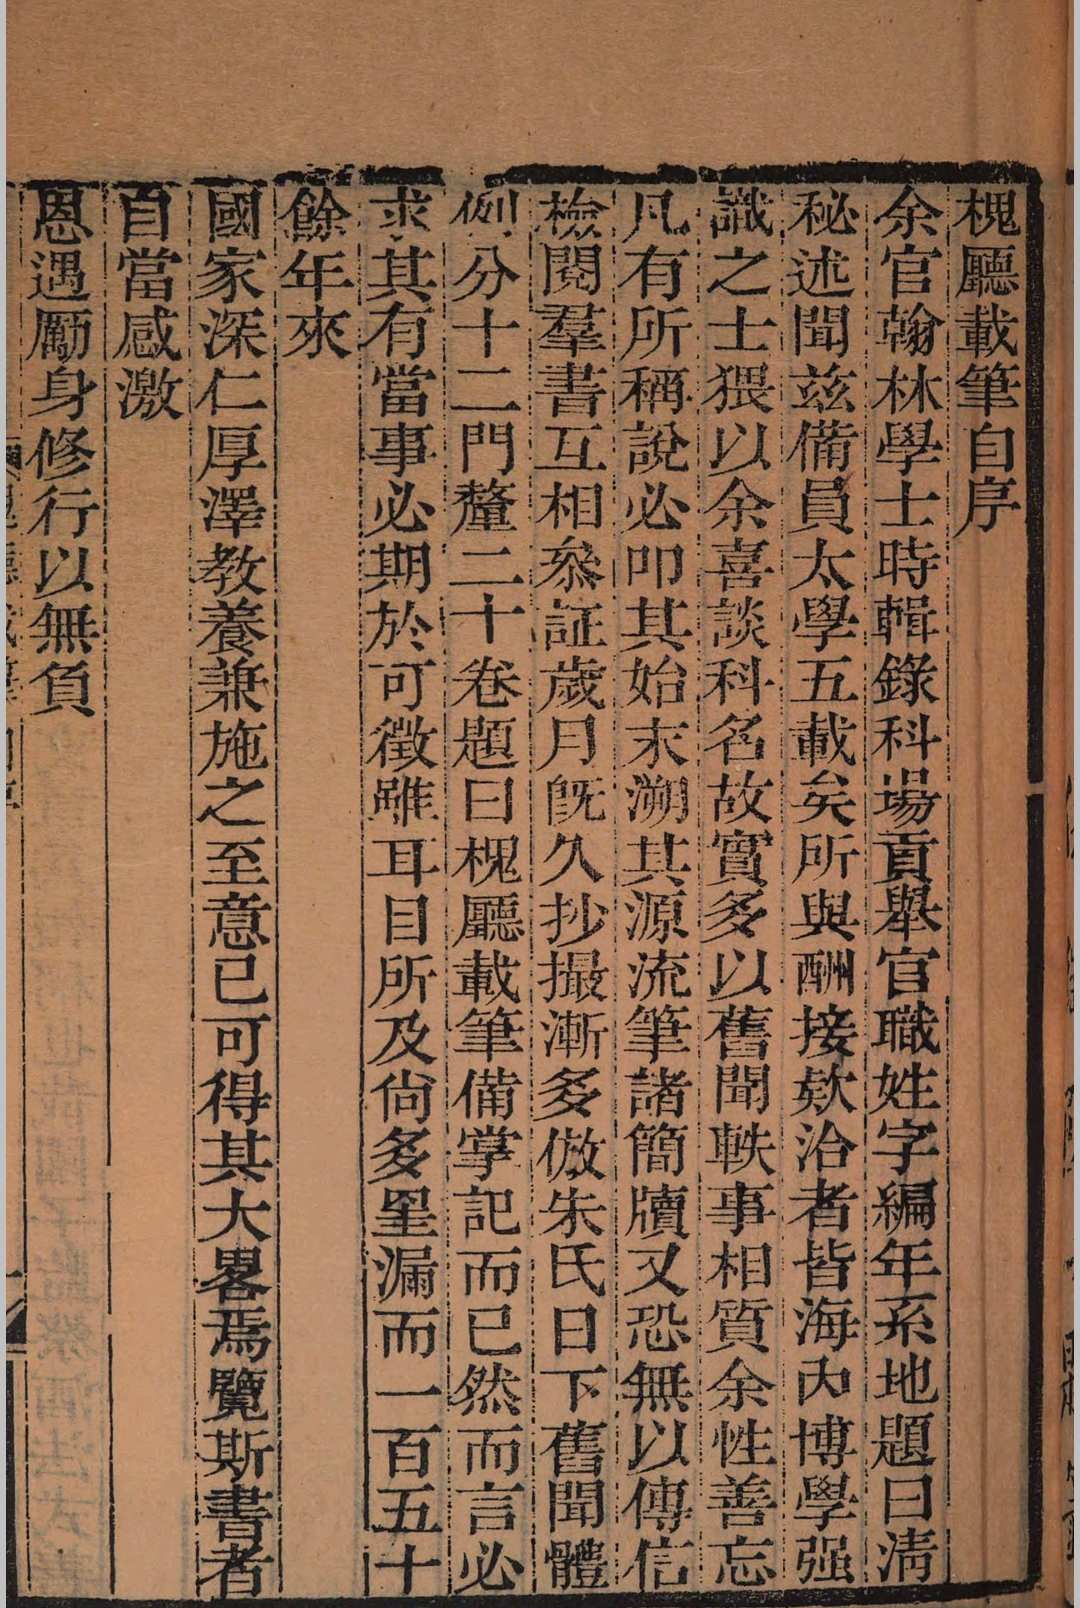 槐廳載筆自序
余官翰林學士時輯錄科場貢舉官職姓字編年系地題曰淸
秘述聞兹備員太學五載矣所與酬接欵洽者皆海內博學强
識之士猥以余喜談科名故實多以舊聞軼事相質余性善忘
凡有所稱說必叩其始末溯其源流筆諸簡牘又恐無以傳信
檢閱羣書互相叅証歲月旣久抄撮漸多倣朱氏日下舊聞體
例分十二門釐二十卷題曰槐廳載筆備掌記而已然而言必
求其有當事必期於可徵雖耳目所及尙多罣漏而一百五十
餘年來
國家深仁厚澤敎養兼施之至意已可得其大畧焉覽斯書者
自當感激
恩遇勵身修行以無負